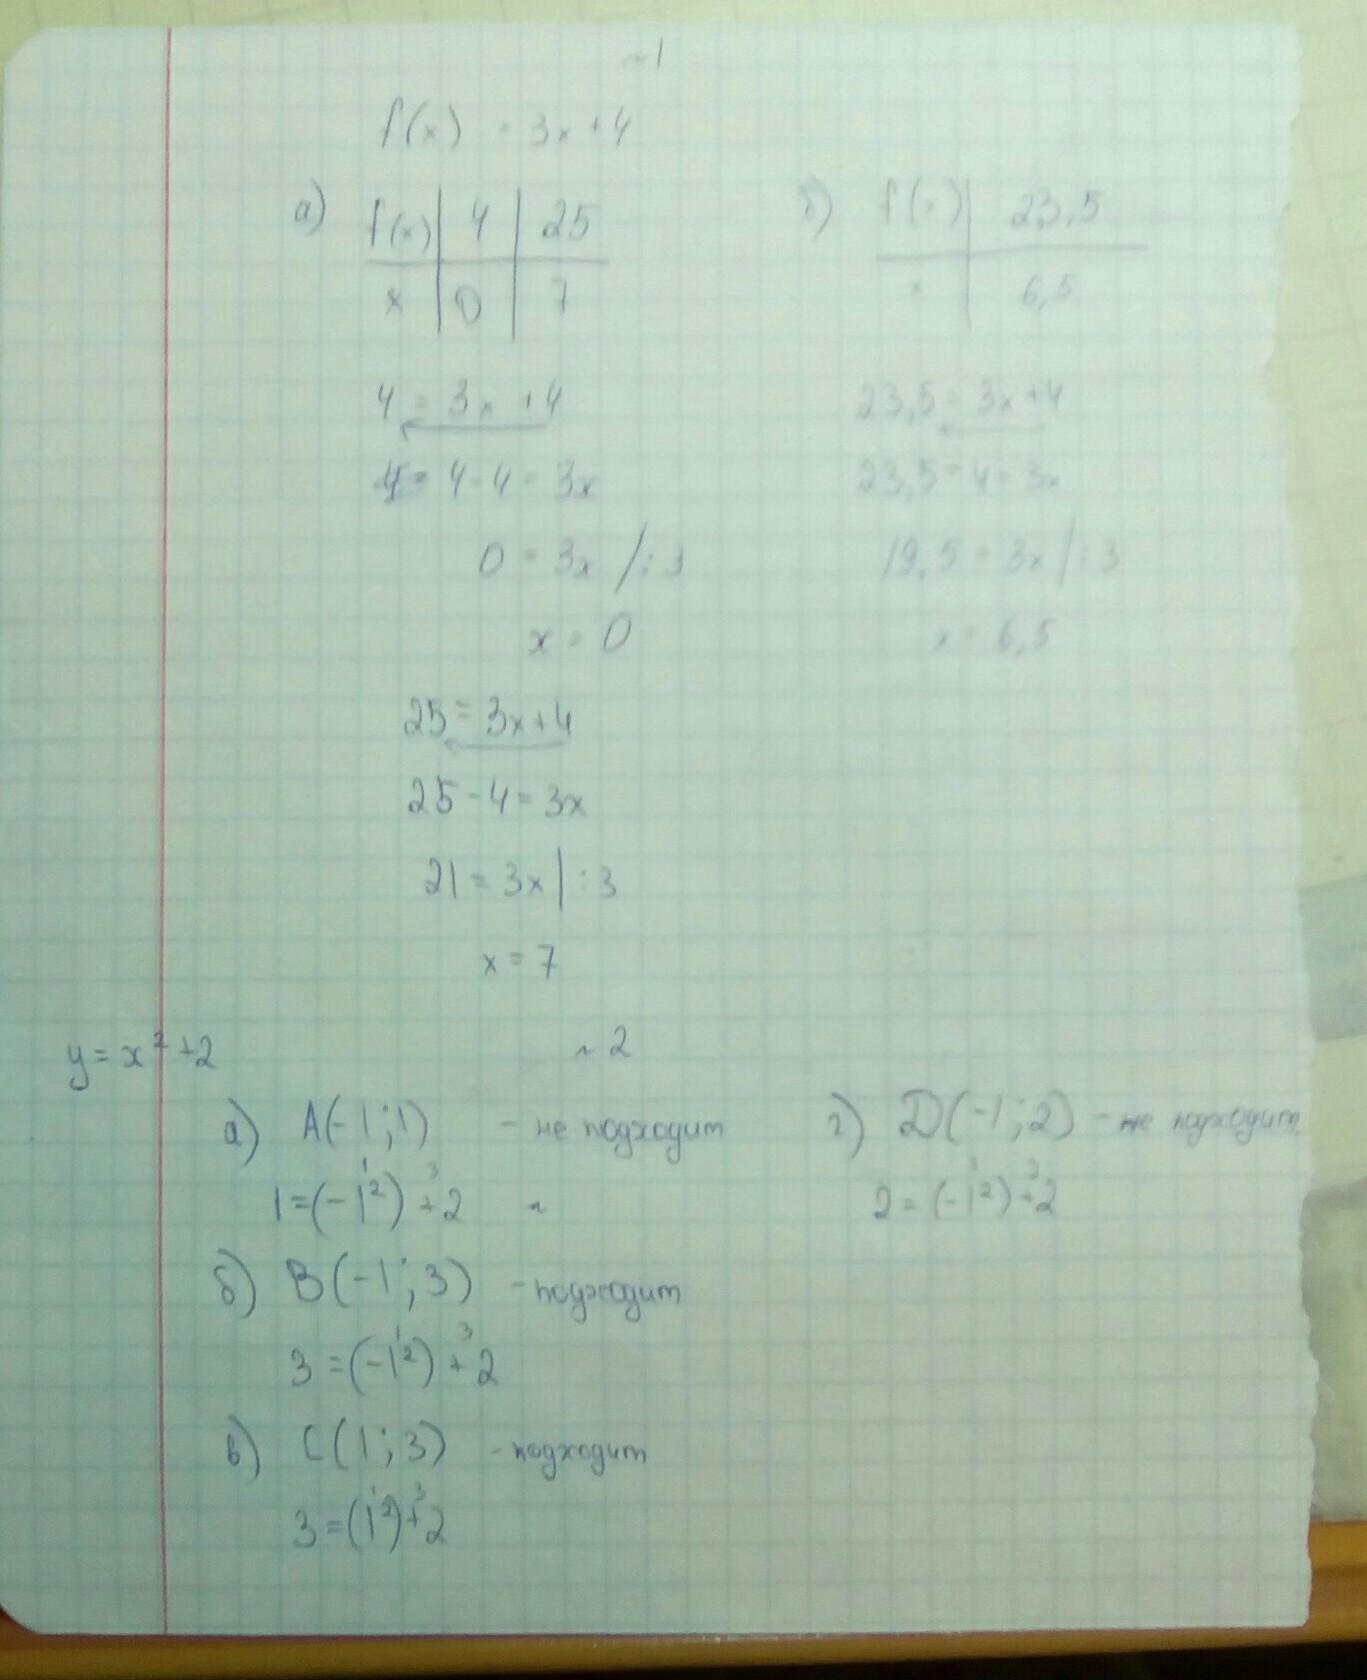 ~1
f(x) = 3x+4
а) f(x) | 4 | 25
x | 0 | 7
4 = 3x+4
4-4=3x
0=3x /:3
x=0
25=3x+4
25-4=3x
21=3x|:3
x=7
б) f(x) | 23,5
x | 6,5
23,5=3x+4
23,5-4=3x
19,5=3x|:3
x=6,5
y=x²+2
~2
а) A(-1;1) - не подходит
1=(-1²)+2
1 3
б) B(-1;3) - подходит
3=(-1²)+2
1 3
в) C(1;3) - подходит
3=(1²)+2
1 3
г) D(-1;2) - не подходит
2=(-1²)+2
1 3